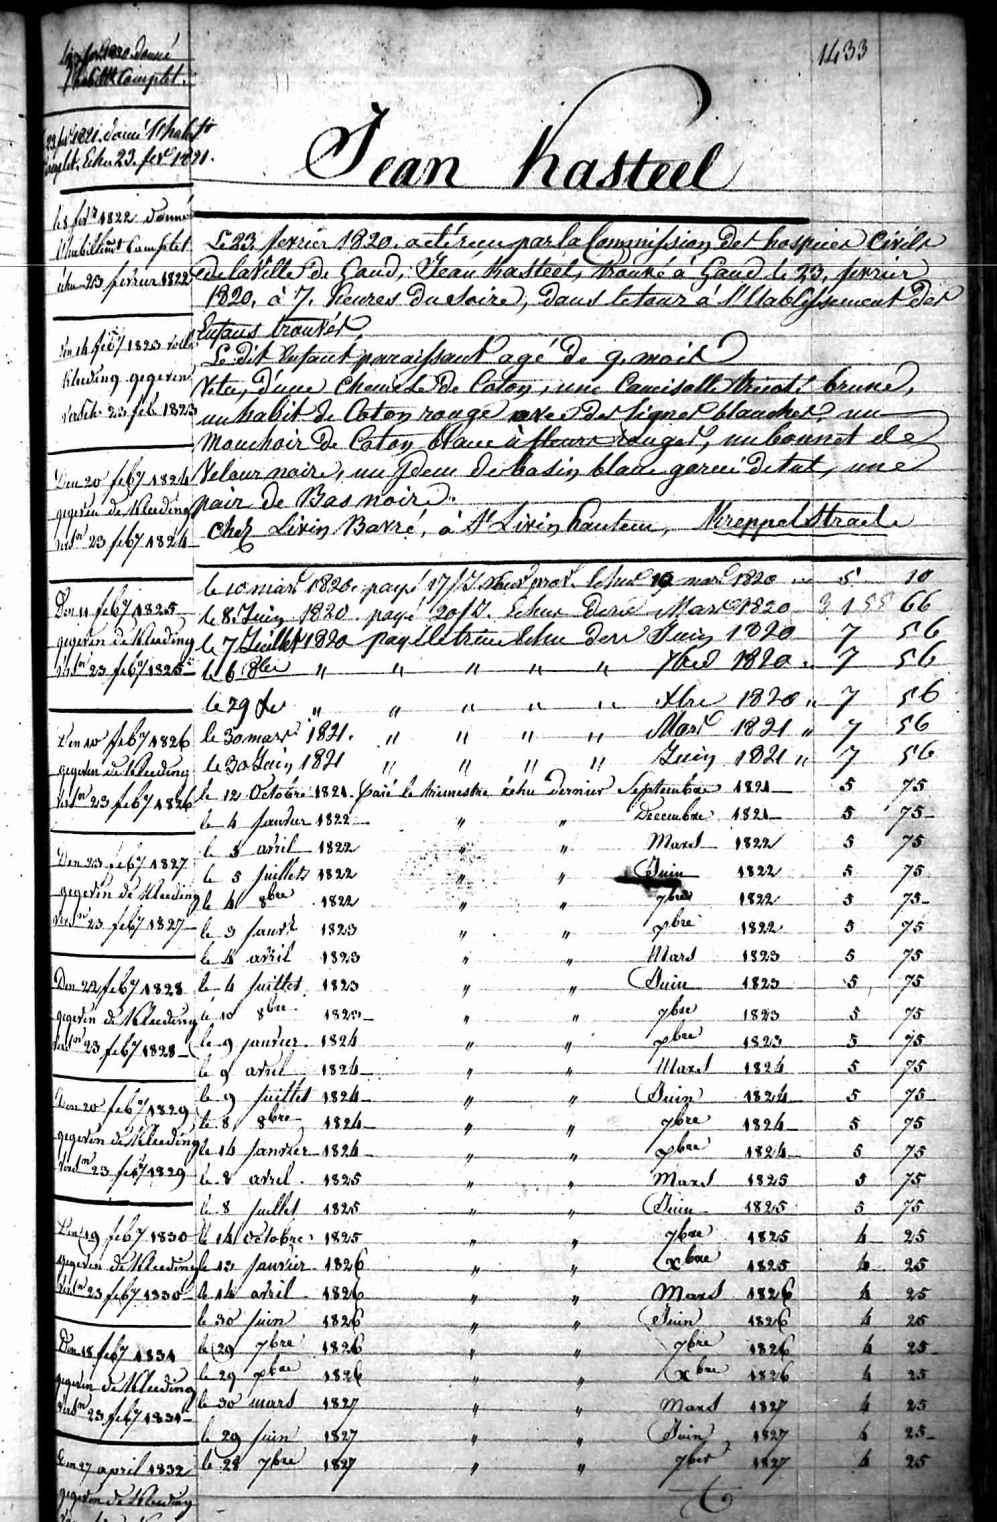 1433
Jean Kasteel
Le 23 fevrier 1820. a été recu par la Commission des hospices Civils
de la Ville de Gand, Jean Kasteel, trouvé à Gand le 23, fevrier
1820, à 7, heures du soire, dans le tour à l'Etablissement des
Enfans trouvés
Le dit Enfant paraissant agé de 9. mois
Vetu, d'une Chemise de Coton, une Camisolle tricot brune,
un habit de Coton rouge avec des lignes blanches, un
Mouchoir de Coton blanc à fleurs rouges, un bonnet de
Velour noire, un idem de basin blanc garni de tul, une
pair de Bas noire.
Chez Livin Barré, à St Livin hautem,
le 10 mars 1820. payé 17/ 19 mars 1820 5 10
le 8 Juin 1820 payé 20/ Echus Mars 1820 66
le 7 Juillet 1820 payé le trim Echu dern Juin 1820 7 56
le 6 8bre " " " " " 7bre 1820 " 7 56
le 29 Xbre " " " " " Xbre 1820 " 7 56
le 30 mars 1821. " " " " Mars 1821 " 7 56
le 30 Juin 1821 " " " " Juin 1821 " 7 56
le 12 Octobre 1821. paié le trimestre échu dernier Septembre 1821 5 75
le 4 Janvier 1822 " " Decembre 1821 5 75
le 5 avril 1822 " " Mars 1822 5 75
le 5 juillet 1822 " " Juin 1822 5 75
le 4 8bre 1822 " " 7bre 1822 5 75
le 3 Janvr 1823 " " xbre 1822 5 75
le 4 avril 1823 " " Mars 1823 5 75
le 4 juillet 1823 " " Juin 1823 5 75
le 10 8bre 1823 " " 7bre 1823 5 75
le 9 janvier 1824 " " xbre 1823 5 75
le 9 avril 1824 " " Mars 1824 5 75
le 9 juillet 1824 " " Juin 1824 5 75
le 8 8bre 1824 " " 7bre 1824 5 75
le 14 janvier 1824 " " xbre 1824 5 75
le 8 avril 1825 " " Mars 1825 5 75
le 8 juillet 1825 " " Juin 1825 5 75
le 14 octobre 1825 " " 7bre 1825 4 25
le 13 janvier 1826 " " xbre 1825 4 25
le 14 avril 1826 " " Mars 1826 4 25
le 30 juin 1826 " " Juin 1826 4 25
le 29 7bre 1826 " " 7bre 1826 4 25
le 29 xbre 1826 " " xbre 1826 4 25
le 30 mars 1827 " " Mars 1827 4 25
le 29 juin 1827 " " Juin 1827 4 25
le 28 7bre 1827 " " 7bre 1827 4 25
1820 donné
l'habillt Complet.
23 fevr 1821. donné l'habillt
Complet. Echu 23. fevr 1821.
le 8 fevr 1822 donné
l'habillemt Complet
échu 23 fevrier 1822
Den 14 feb 1823
Kleeding gegeven
23 feb 1823
Den 20 feby 1824
gegeven de Kleeding
23 feby 1824
Den 11 feby 1825
gegeven de Kleeding
23 feby 1825
Den 10 feby 1826
gegeven de Kleeding
23 feby 1826
Den 23 feby 1827
gegeven de Kleeding
23 feby 1827
Den 22 feby 1828
gegeven de Kleeding
23 feby 1828
Den 20 feby 1829
gegeven de Kleeding
23 feby 1829
Den 19 feby 1830
gegeven de Kleeding
23 feby 1830
Den 18 feby 1831
gegeven de Kleeding
23 feby 1831
Den 27 april 1832
gegeven de Kleeding